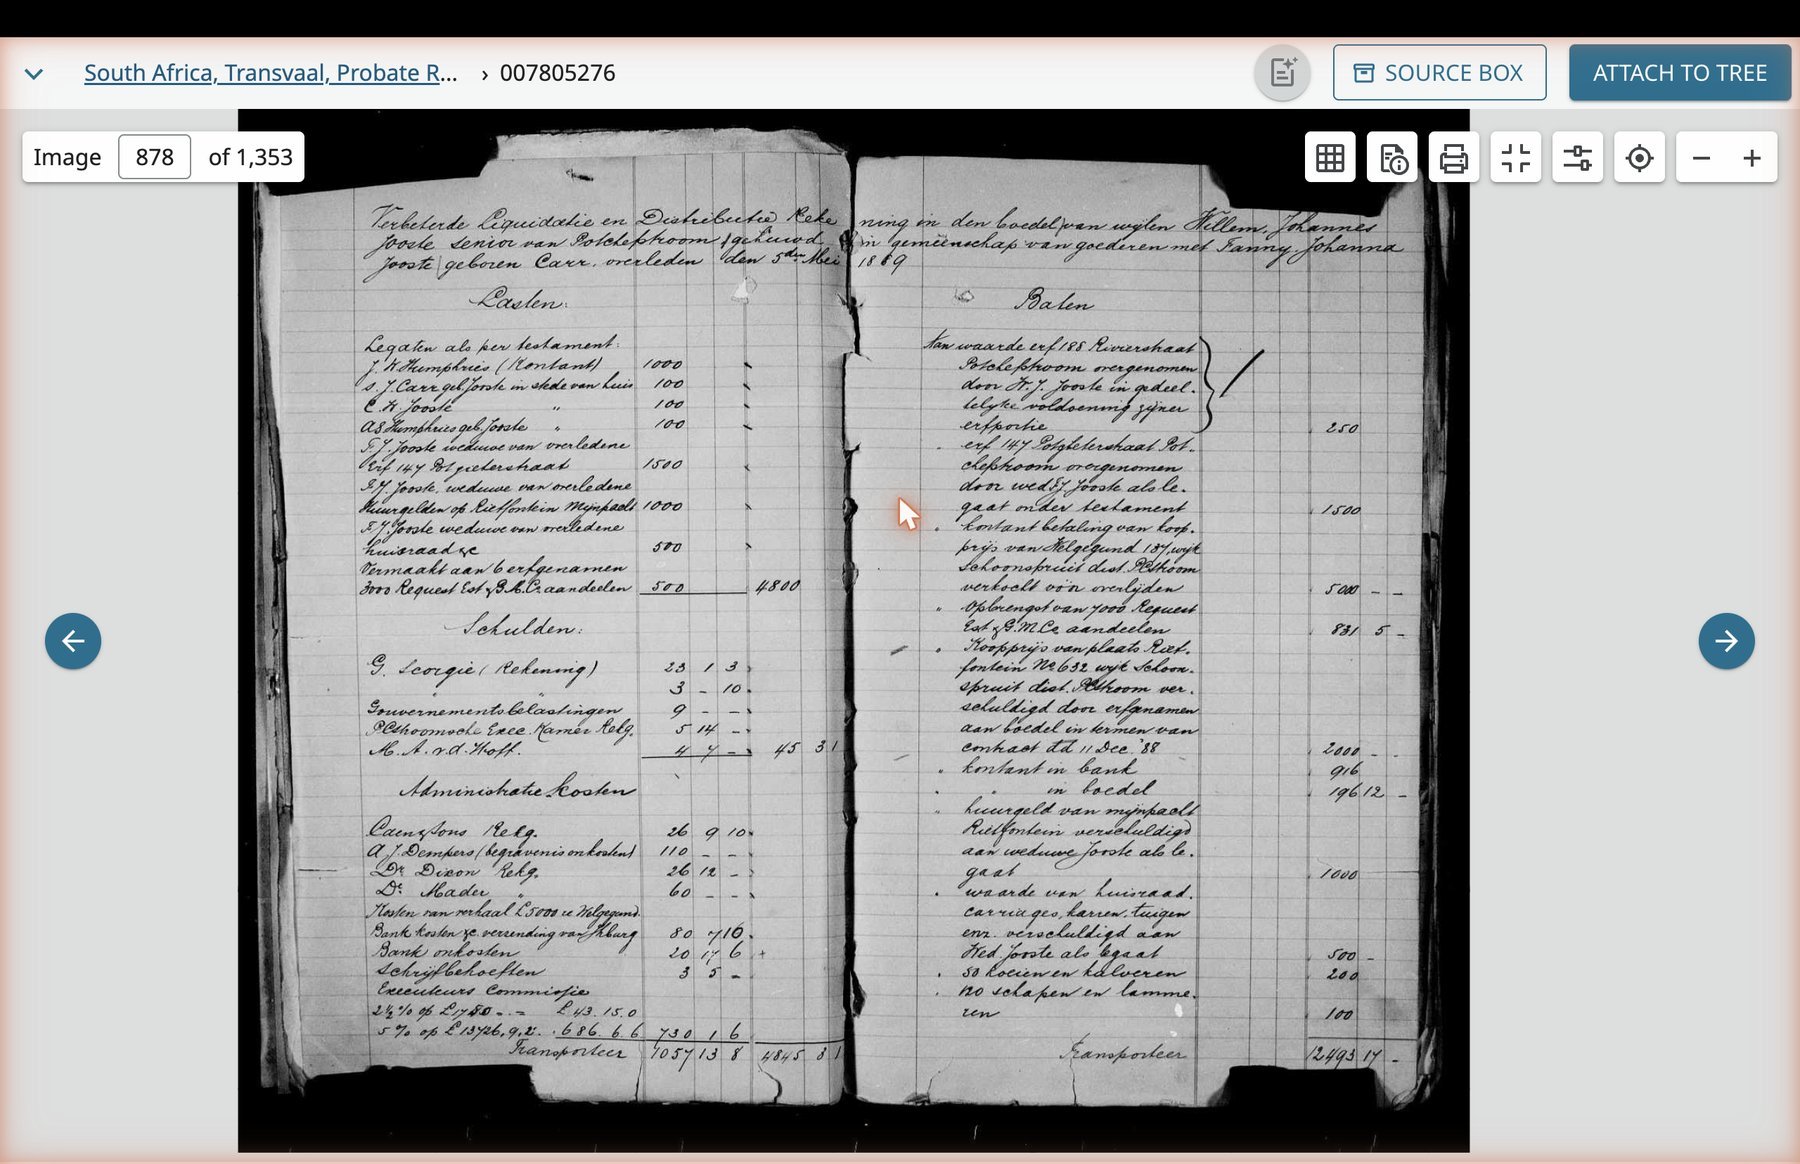 South Africa, Transvaal, Probate R... › 007805276
SOURCE BOX
ATTACH TO TREE
Image 878 of 1,353
Verbeterde Liquidatie en Distributie Rekening in den boedel van wijlen Willem Johannes
Jooste senior van Potchefstroom gehuwd in gemeenschap van goederen met Fanny Johanna
Jooste geboren Carr, overleden den 5den Mei 1889
Lasten:
Legaten als per testament:
J. W. Humphries (Kontant) 1000
S. J. Carr geb Jooste in stede van huis 100
C. W. Jooste " 100
A S Humphries geb. Jooste " 100
F. J. Jooste weduwe van overledene
Erf 147 Potgieterstraat 1500
F. J. Jooste, weduwe van overledene
Huurgelden op Rietfontein Mynpacht 1000
F. J. Jooste weduwe van overledene
huisraad &c 500
Vermaakt aan 6 erfgenamen
3000 Request Est & G. M. Co. aandeelen 500 4800
Schulden:
G. Scorgie (Rekening) 23 1 3
" 3 - 10
Gouvernementsbelastingen 9 - -
PCstroomsche Exec. Kamer Rekg. 5 14 -
M. A. v. d. Hoff. 4 7 - 45 3 1
Administratie kosten
Caen & Sons Rekg. 26 9 10
A J. Dempers (begravenis onkosten) 110 - -
Dr Dixon Rekg. 26 12 -
Dr Mader " 60 - -
Kosten van verhaal £5000 re Welgegund
Bank kosten &c. verzending van Jhburg 80 7 10
Bank onkosten 20 17 6
Schrijfbehoeften 3 5 -
Executeurs Commissie
2½ % op £1750 - - £43. 15. 0
5 % op £13726, 9, 2. 686. 6. 6 730 1 6
Transporteer 1057 13 8 4845 3 1
Baten
Aan waarde erf 188 Rivierstraat
Potchefstroom overgenomen
door W. J. Jooste in gedeel-
telyke voldoening zijner
erfportie 250
" erf 147 Potgieterstraat Pot-
chefstroom overgenomen
door wed F J Jooste als le-
gaat onder testament 1500
" kontant betaling van koop-
prijs van Welgegund 187, wijk
Schoonspruit dist. PCstroom
verkocht vóór overlijden 5000 - -
" Opbrengst van 7000 Request
Est & G. M. Co. aandeelen 831 5 -
" Koopprijs van plaats Riet-
fontein No 632 wyk Schoon-
spruit dist. PCstroom ver-
schuldigd door erfgenamen
aan boedel in termen van
contract dd 11 Dec. '88 2000 - -
" kontant in bank 916
" " in boedel 196 12 -
" huurgeld van mijnpacht
Rietfontein verschuldigd
aan weduwe Jooste als le-
gaat 1000
" waarde van huisraad.
carriages, karren, tuigen
enz. verschuldigd aan
Wed Jooste als legaat 500 -
" 50 koeien en kalveren 200
" 120 schapen en lamme-
ren 100
Transporteer 12493 17 -